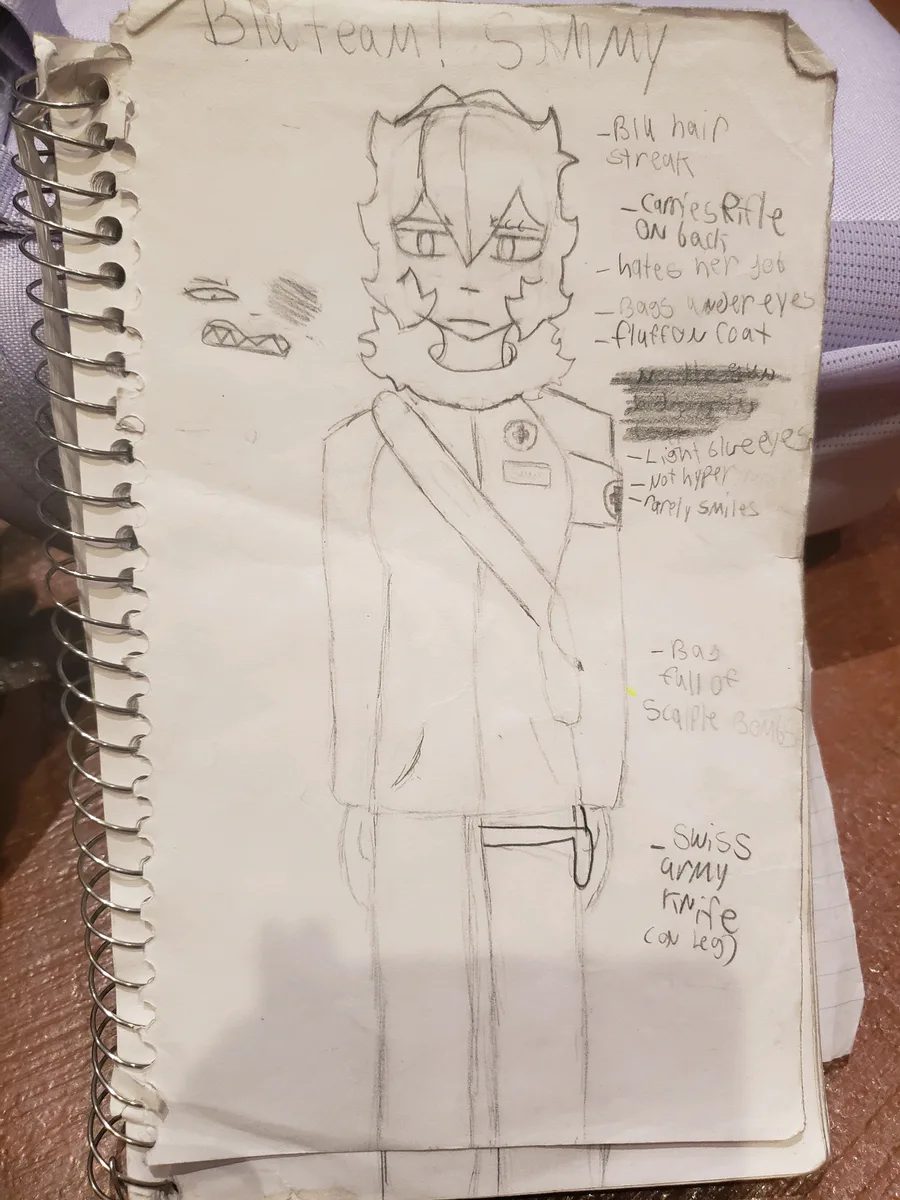 Blu team! Sammy
-Blu hair
streak
-carries Rifle
ON back
-hates her job
-Bags under eyes
-fluff on coat
-Light blue eyes
-Not hyper
-rarely smiles
-Bag
full of
Scalple BOMBS
-Swiss
army
Knife
(on Leg)